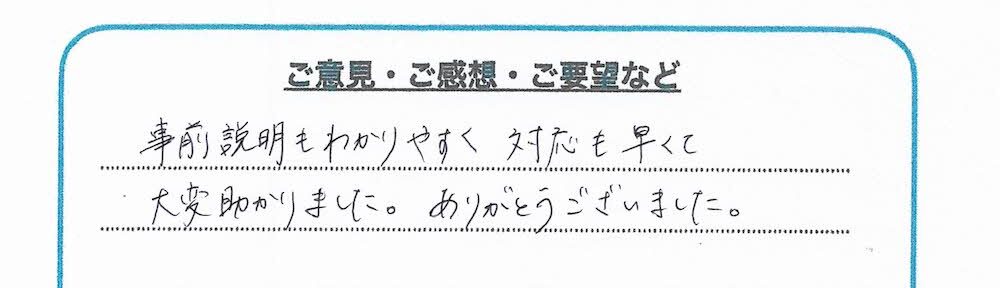 ご意見・ご感想・ご要望など
事前説明もわかりやすく 対応も早くて
大変助かりました。ありがとうございました。